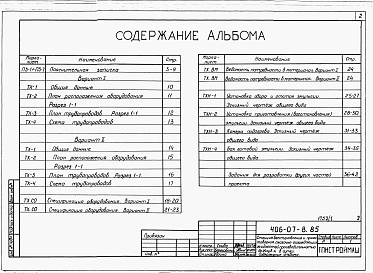 2
СОДЕРЖАНИЕ АЛЬБОМА
Марка-лист Наименование Стр.
ПЗ-1÷ПЗ-7 Пояснительная записка 3-9
Вариант I
ТХ-1 Общие данные 10
ТХ-2 План расположения оборудования 11
Разрез 1-1
ТХ-3 План трубопроводов. Разрез 1-1 12
ТХ-4 Схема трубопроводов 13
Вариант II
ТХ-1 Общие данные 14
ТХ-2 План расположения оборудования 15
Разрез 1-1
ТХ-3 План трубопроводов. Разрез 1-1 16
ТХ-4 Схема трубопроводов 17
ТХ.СО Спецификация оборудования. Вариант I 18-20
ТХ.СО Спецификация оборудования. Вариант II 21-23
Марка-лист Наименование Стр.
ТХ.ВМ Ведомость потребности в материалах. Вариант I 24
ТХ.ВМ Ведомость потребности в материалах. Вариант II 24
ТХН-1 Установка сбора и отстоя эмульсии 25-27
Эскизный чертёж общего вида
ТХН-2 Установка приготовления (восстановления) 28-30
эмульсии. Эскизный чертёж общего вида
ТХН-3 Камера подогрева. Эскизный чертёж 31-33
общего вида
ТХН-4 Бак готовой эмульсии. Эскизный чертёж 34-35
общего вида
Задания для разработки других частей 36-43
проекта
406-07-8.85
Привязан
Инв. №
ГПИСТРОЙМАШ